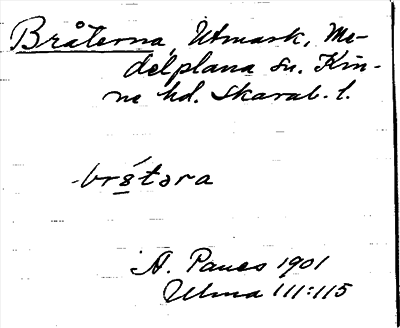 Bråterna, Utmark, Me-
delplana sn. Kin-
ne hd. Skarab. l.
-brś̲təra
A. Pauss 1901
Ulma 111:115